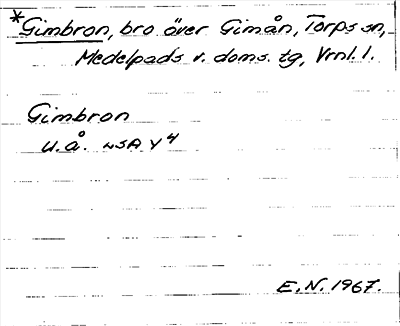 *Gimbron, bro över Gimån, Torps sn,
Medelpads v. doms. tg, Vrnl. 1.
Gimbron
u.å. LSA Y4
E.N. 1967.